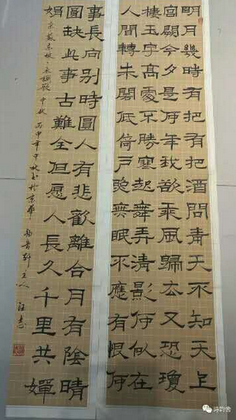 明月幾時有把酒問青天不知天上
宮闕今夕是何年我欲乘風歸去又恐瓊
樓玉宇高處不勝寒起舞弄清影何似在
人間轉朱閣低綺戶照無眠不應有恨何
事長向別時圓人有悲歡離合月有陰晴
圓缺此事古難全但愿人長久千里共嬋
娟 蘇東坡水調歌頭中秋 丙申年中秋於京華 主人